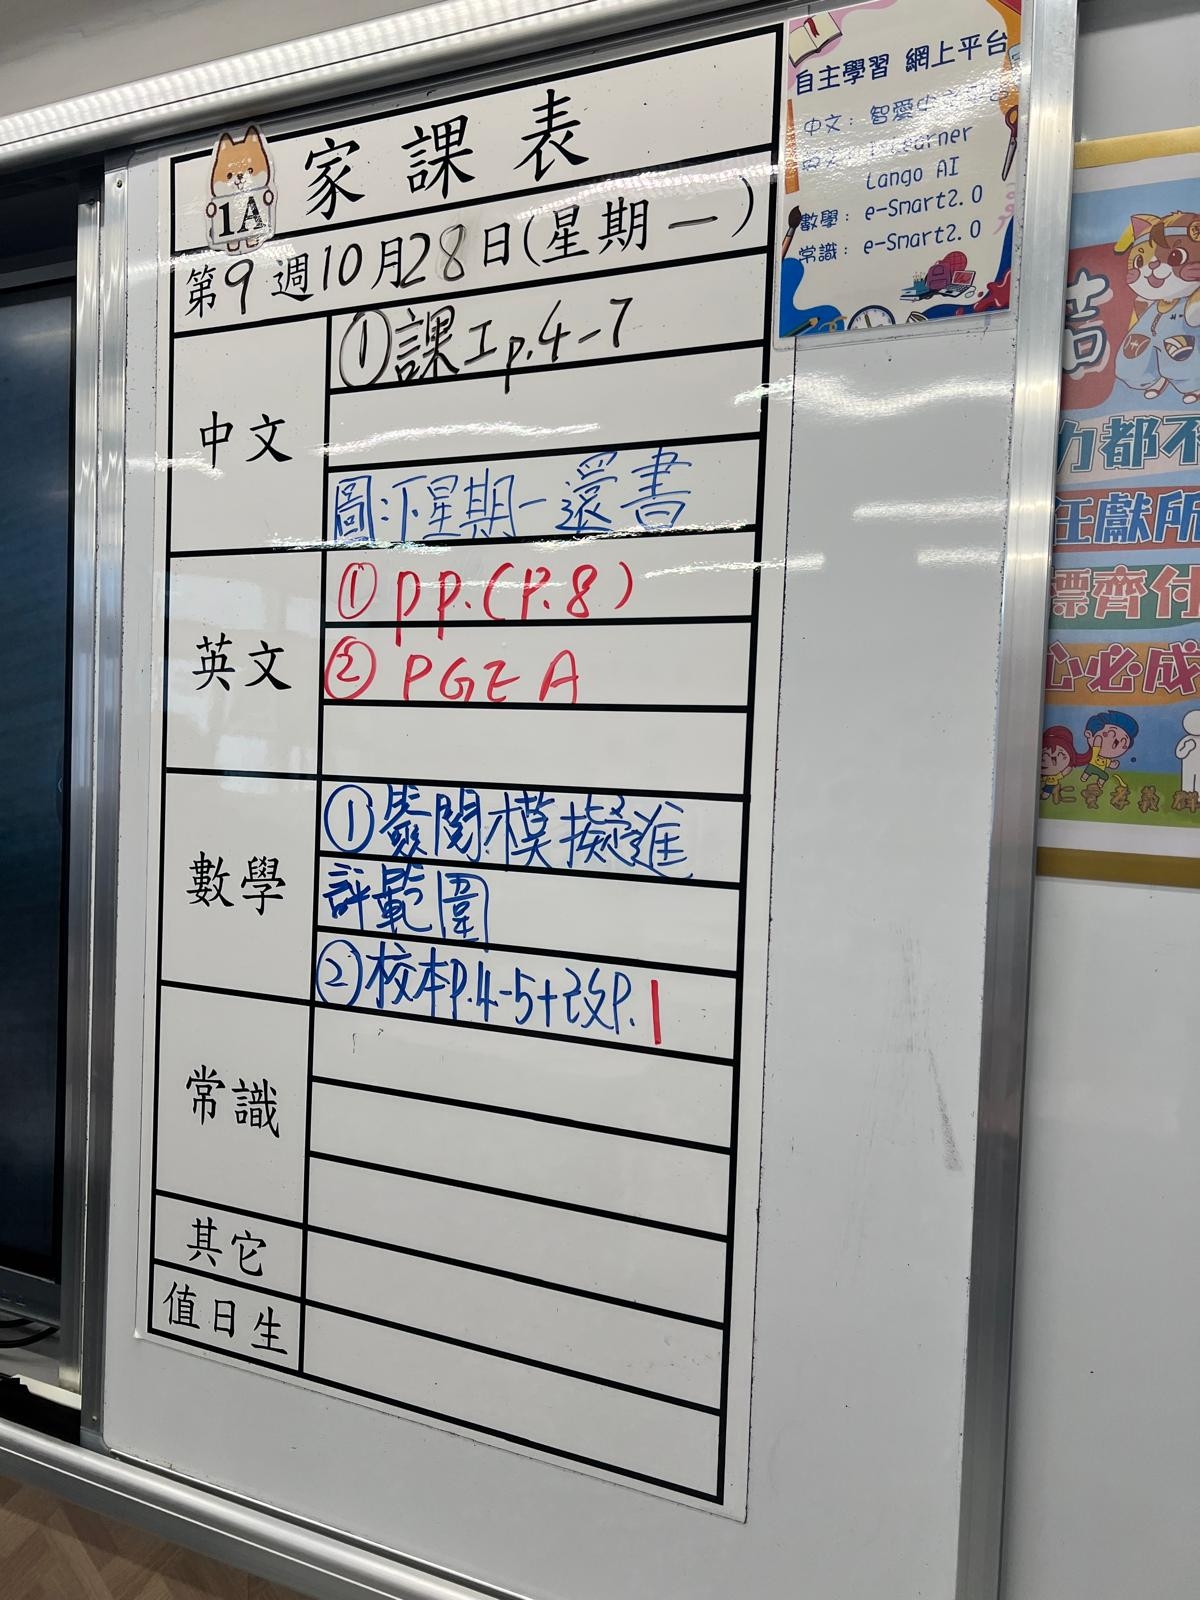 家課表
1A
第9週10月28日(星期一)
中文
①課工p.4-7
圖:下星期一還書
英文
①pp.(P.8)
②PGE A
數學
①簽閱模擬進
評範圍
②校本P.4-5+改P.1
常識
其它
值日生
自主學習 網上平台
中文: 智愛中文平台
i-Learner
Lango AI
數學: e-Smart2.0
常識: e-Smart2.0
力都不
任獻所
標齊付
心必成
仁愛孝義